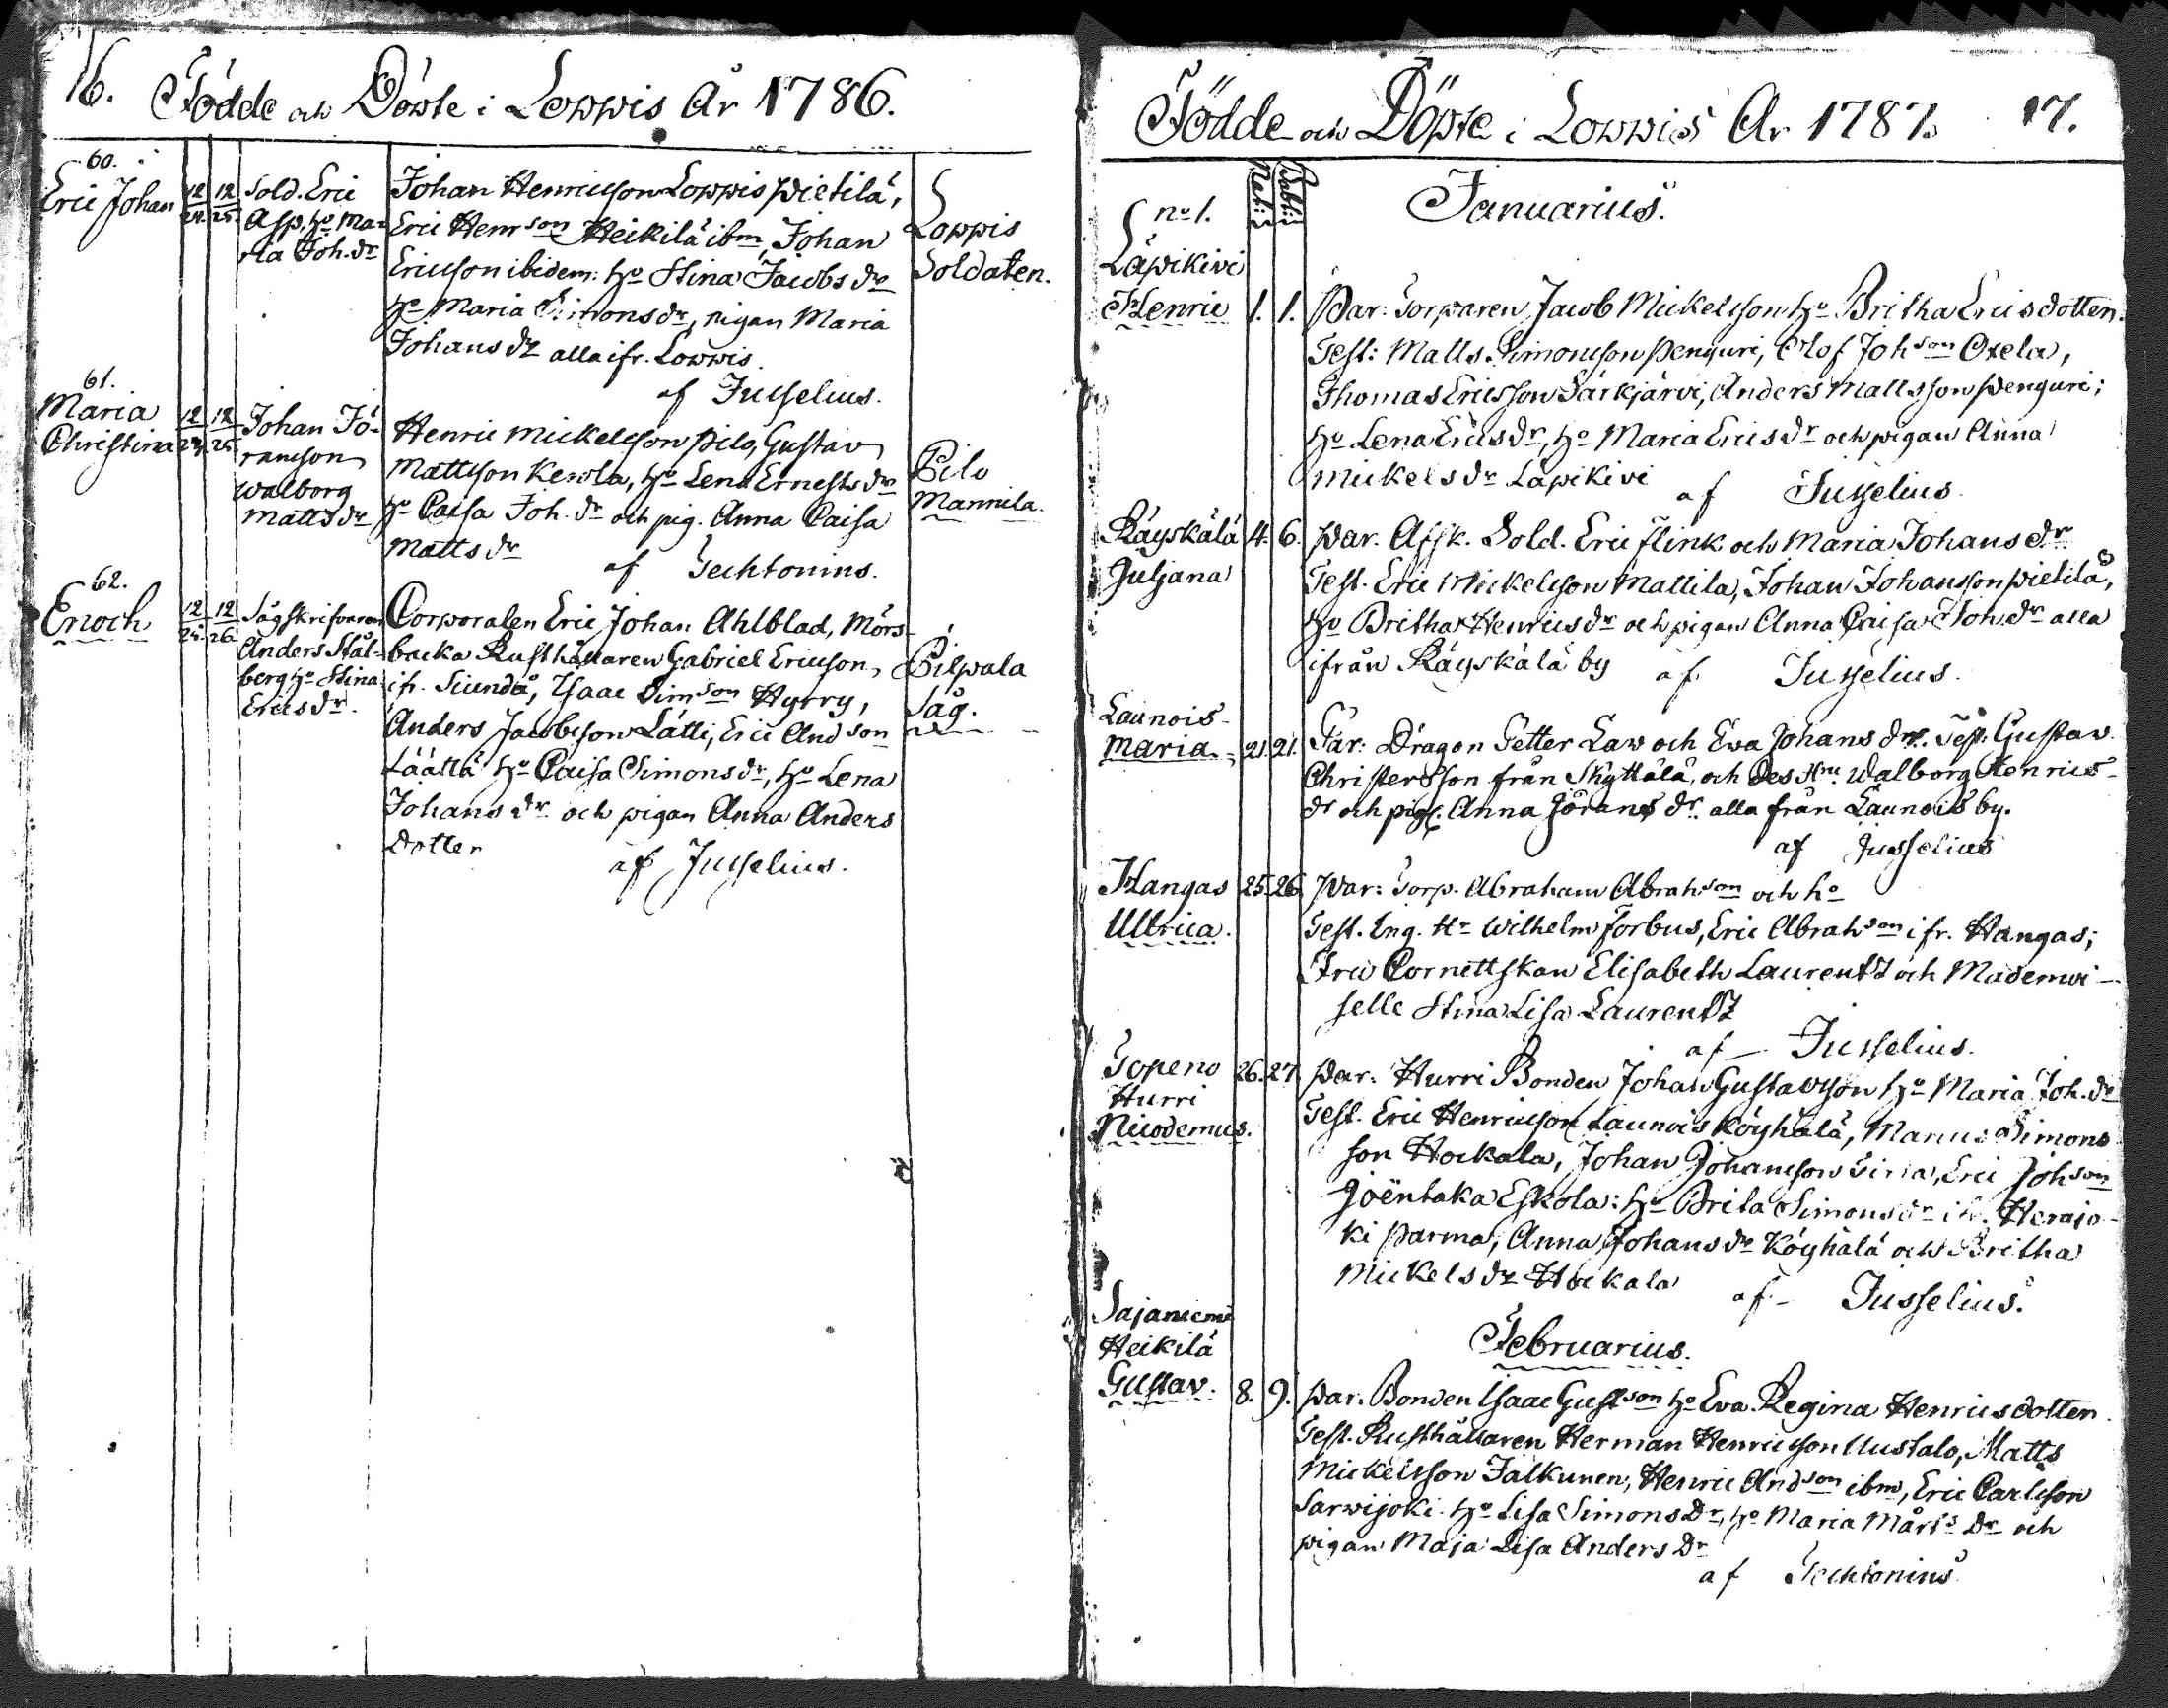 16. Födde och Döpte i Loppis År 1786.
60.
Eric Johan
12 12
24. 25.
Sold. Eric
Asp, ho Ma-
ria Joh. dr
Johan Henricsson Loppis Pietilä,
Eric Henrson Heikilä ibm, Johan
Ericsson ibidem: ho Stina Jacobs dr
ho Maria Simons dr, pigan Maria
Johans dr alla ifr. Loppis.
af Jusselius.
Loppis
Soldaten.
61.
Maria
Christina
12 12
24. 25.
Johan Jö-
ransson
Walborg
Matts dr
Henric Mickelsson Pilo, Gustav
Mattsson Kerola, ho Lena Ernests dr
ho Caisa Joh. dr och pig. Anna Caisa
Matts dr
af Techtonius.
Pilo
Mannila.
62.
Enoch
12 12
24. 26.
Sågskrifvaren
Anders Stål-
berg ho Stina
Erics dr.
Corporalen Eric Johan Ahlblad, Mörs-
backa Rusthållaren Gabriel Ericson,
ifr. Siundå, Isaac Simson Hyrry,
Anders Jacobsson Lätti, Eric Andson
Läättä ho Caisa Simons dr, ho Lena
Johans dr och pigan Anna Anders
dotter
af Jusselius.
Pilpala
Såg.
Födde och Döpte i Loppis År 1787. 17.
Nat: Babt:
Januarius.
no 1.
Läpikivi
Henric 1. 1. Par: Torparen Jacob Mickelsson ho Britha Ericsdotter.
Test: Matts Simonsson Penguri, Olof Johson Oxela,
Thomas Ericsson Särkjärvi, Anders Mattsson Penguri;
ho Lena Erics dr, ho Maria Erics dr och pigan Anna
Mickels dr Läpikivi af Jusselius.
Räyskälä 4. 6. Par. Afsk. Sold. Eric Flink och Maria Johans dr
Juljana Test. Eric Mickelsson Mattila, Johan Johansson Pietilä,
ho Britha Henrics dr och pigan Anna Caisa Joh. dr alla
ifrån Räyskälä by af Jusselius.
Launois
Maria 21. 21. Par: Dragon Petter Law och Ewa Johans dr. Test: Gustav
Christersson från Skyttälä, och Des Hru. Walborg Henrics
dr och pig. Anna Jörans dr. alla från Launois by.
af Jusselius
Hangas 25. 26. Par: Torp. Abraham Abrahson och ho
Ulbrica. Test. Eng. Hr Wilhelm Forbus, Eric Abrahson ifr. Hangas;
Fru Cornettskan Elisabeth Laurentz och Mademoi-
selle Stina Lisa Laurentz
af Jusselius.
Topeno 26. 27. Par: Hurri Bonden Johan Gustavsson ho Maria Joh. dr
Hurri Test. Eric Henricsson Launois Köyhälä, Manus Simons
Nicodemus. son Hockala, Johan Johansson Eric Johson
Joëntaka Eskola: ho Brita Simons dr ifr. Herajo-
ki Parma, Anna Johans dr Köyhälä och Britha
Mickels dr Hockala af Jusselius.
Februarius.
Sajaniemi
Heikilä
Gustav. 8. 9. Par. Bonden Isaac Gustson ho Eva Regina Henricsdotter.
Test. Rusthållaren Herman Henricsson Uustalo, Matts
Mickelsson Jalkunen, Henric Andson ibm, Eric Carlsson
Sarwijoki. ho Lisa Simons Dr, ho Maria Mårts Dr och
pigan Maja Lisa Anders Dr
af Techtonius